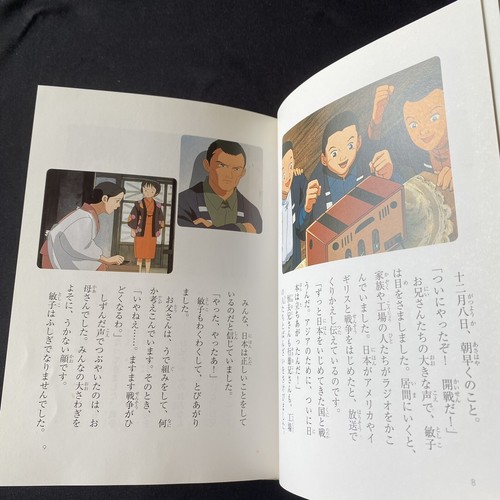 十二月八日、朝早くのこと。
「ついにやったぞ！　開戦だ！」
お兄さんたちの大きな声で、敏子
は目をさましました。居間にいくと、
家族や工場の人たちがラジオをかこ
んでいました。日本がアメリカやイ
ギリスと戦争をはじめたと、放送で
くりかえし伝えているのです。
「ずっと日本をいじめてきた国と戦
うんだ。アジアのために、ついに日
本は立ちあがったんだ！」
みんな、日本は正しいことをして
いるのだと信じていました。
「やった、やったあ！」
敏子もわくわくして、とびあがり
ました。
お父さんは、うで組みをして、何
か考えこんでいます。そのとき、
「いやねえ……。ますます戦争がひ
どくなるわ。」
しずんだ声でつぶやいたのは、お
母さんでした。みんなの大さわぎを
よそに、うかない顔です。
敏子はふしぎでなりませんでした。